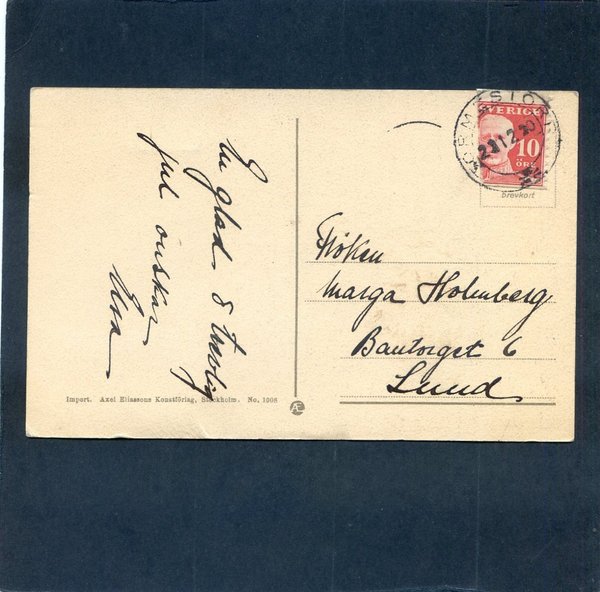 En glad & trevlig
jul önskar
Elsa
Fröken
Marga Holmberg
Bantorget 6
Lund
SVERIGE
10
ÖRE
23 12 20
brevkort
Import. Axel Eliassons Konstförlag, Stockholm. No. 1008
Æ